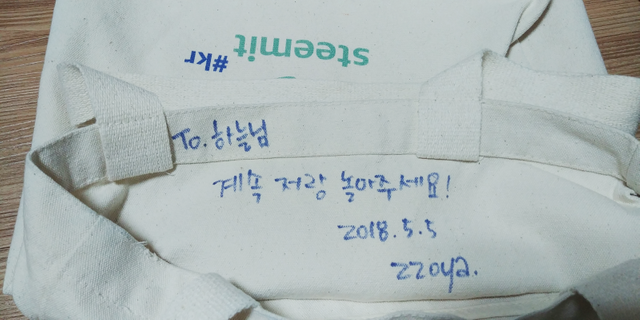 steemit
#kr
To. 하늘님
계속 저랑 놀아주세요!
2018.5.5
zzoya.